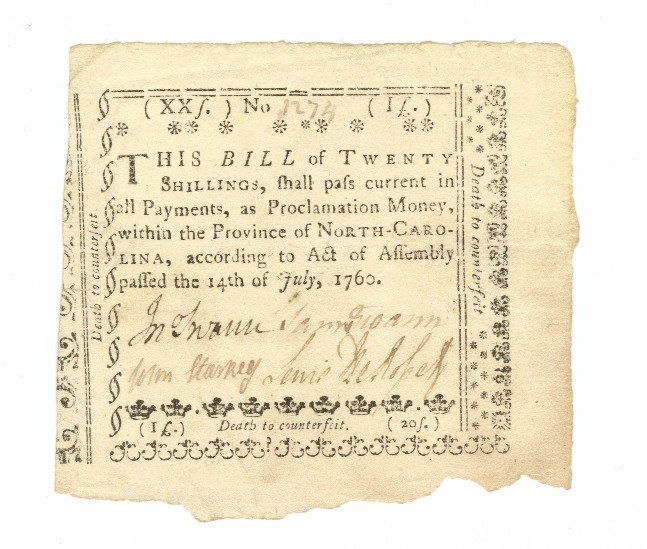 ( XXſ. ) No 1274 ( I£. )
THIS BILL of TWENTY
SHILLINGS, ſhall paſs current in
all Payments, as Proclamation Money,
within the Province of NORTH-CARO-
LINA, according to Act of Aſſembly
paſſed the 14th of July, 1760.
Jnº Swann Sam Swann
John Starkey Lewis De Roſſett
( I£. ) Death to counterfeit. ( 20ſ. )
Death to counterfeit
Death to counterfeit